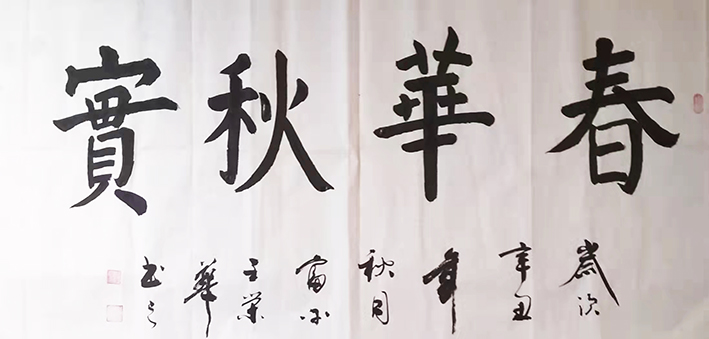 春華秋實
歲次辛丑年秋月富平王榮華書之